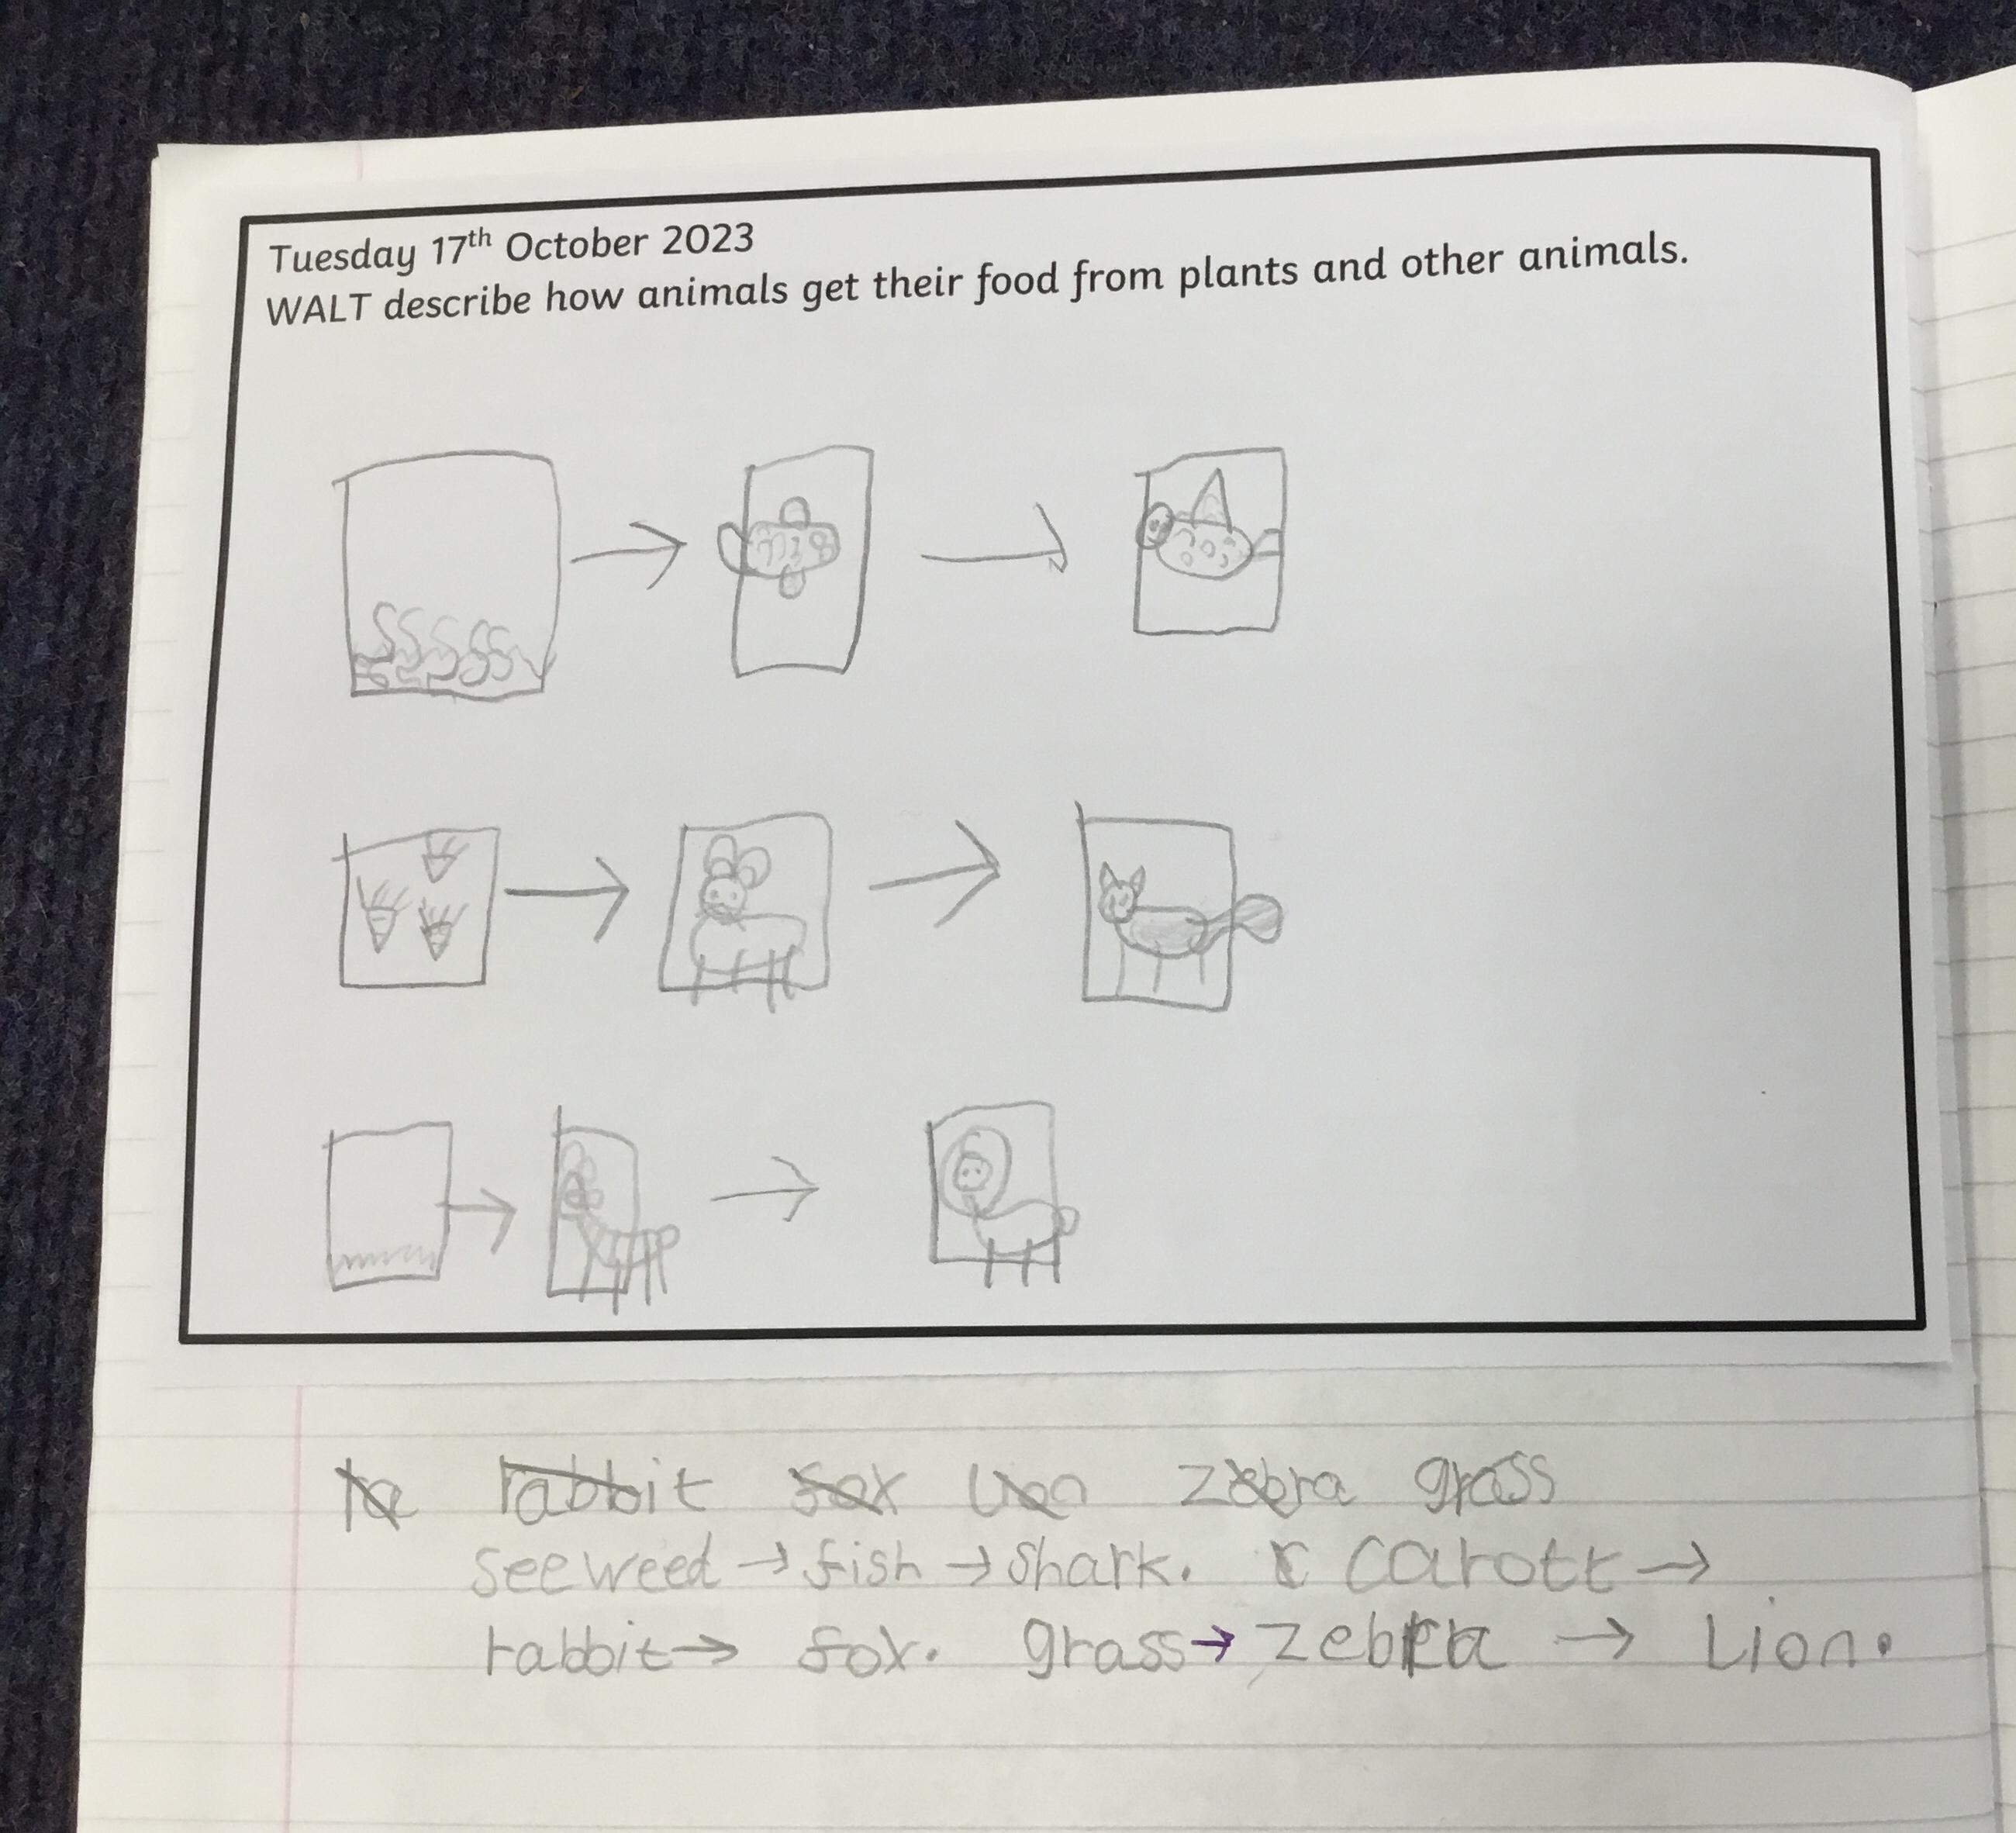 Tuesday 17th October 2023
WALT describe how animals get their food from plants and other animals.
rabbit fox lion zebra grass
seeweed → fish → shark. c carott →
rabbit → fox. grass → zebra → Lion.